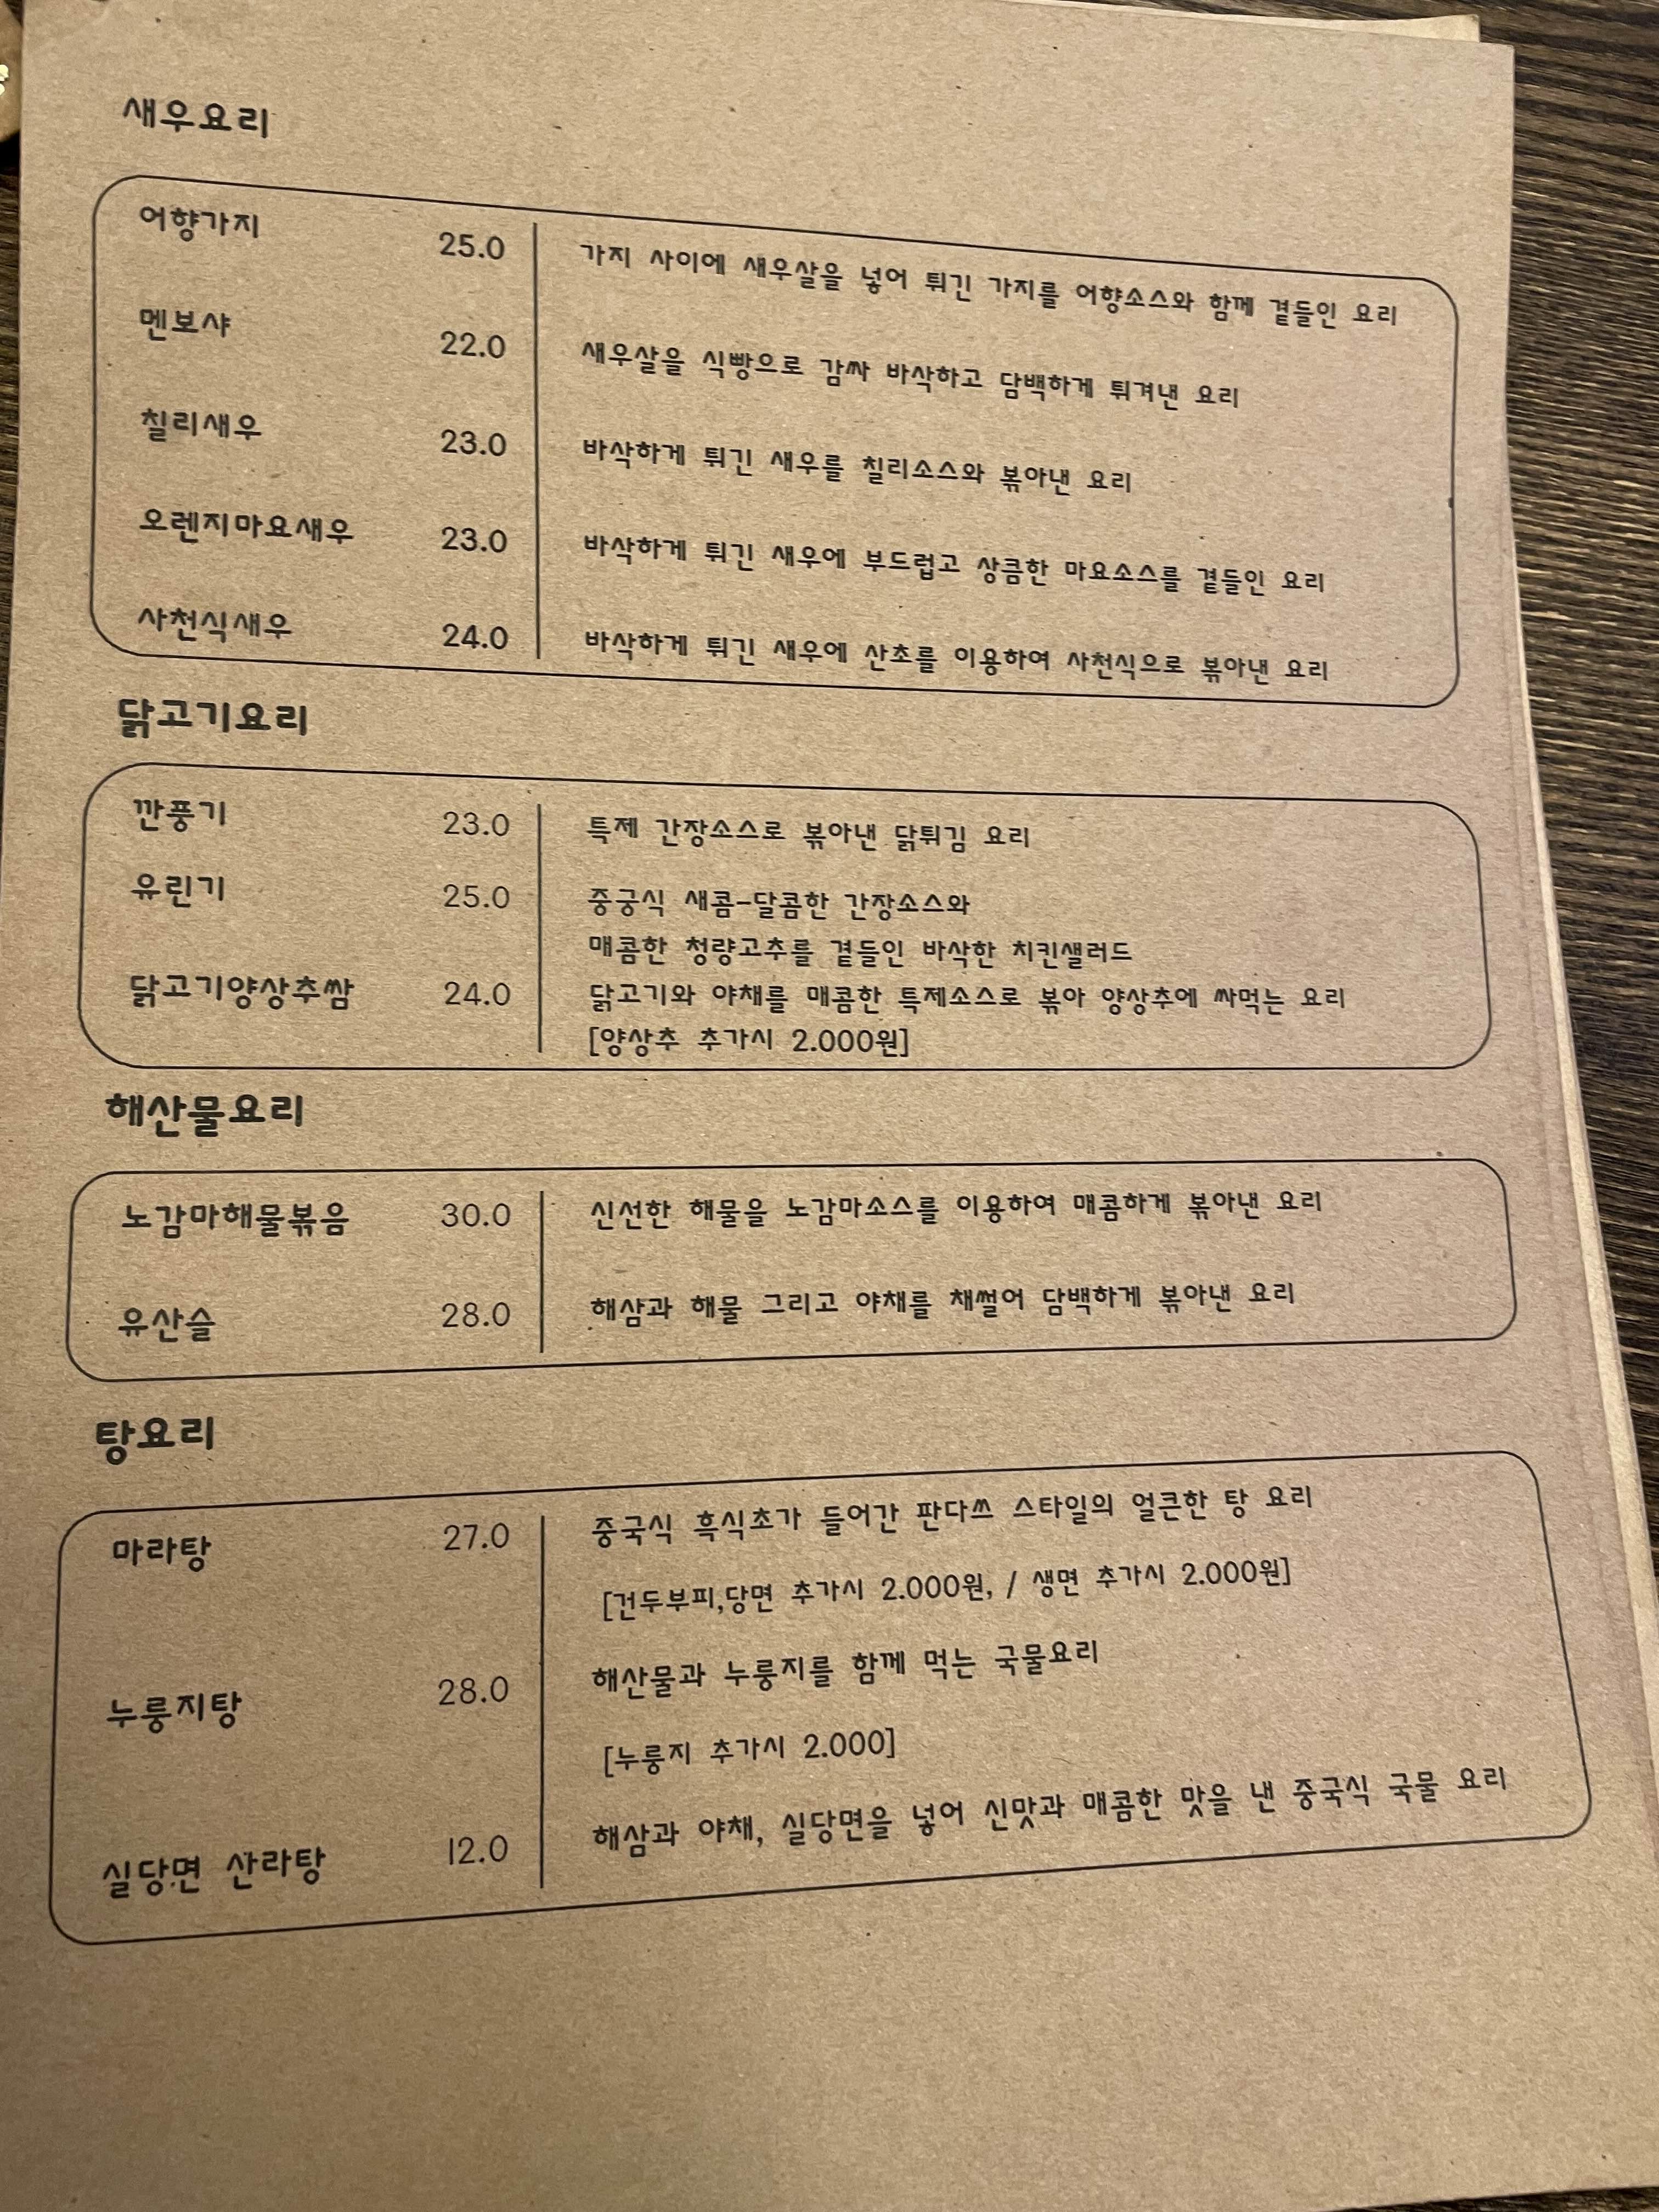 새우요리
어향가지 25.0 가지 사이에 새우살을 넣어 튀긴 가지를 어향소스와 함께 곁들인 요리
멘보샤 22.0 새우살을 식빵으로 감싸 바삭하고 담백하게 튀겨낸 요리
칠리새우 23.0 바삭하게 튀긴 새우를 칠리소스와 볶아낸 요리
오렌지마요새우 23.0 바삭하게 튀긴 새우에 부드럽고 상큼한 마요소스를 곁들인 요리
사천식새우 24.0 바삭하게 튀긴 새우에 산초를 이용하여 사천식으로 볶아낸 요리
닭고기요리
깐풍기 23.0 특제 간장소스로 볶아낸 닭튀김 요리
유린기 25.0 중궁식 새콤-달콤한 간장소스와
매콤한 청량고추를 곁들인 바삭한 치킨샐러드
닭고기양상추쌈 24.0 닭고기와 야채를 매콤한 특제소스로 볶아 양상추에 싸먹는 요리
[양상추 추가시 2.000원]
해산물요리
노감마해물볶음 30.0 신선한 해물을 노감마소스를 이용하여 매콤하게 볶아낸 요리
유산슬 28.0 해삼과 해물 그리고 야채를 채썰어 담백하게 볶아낸 요리
탕요리
마라탕 27.0 중국식 흑식초가 들어간 판다쓰 스타일의 얼큰한 탕 요리
[건두부피,당면 추가시 2.000원, / 생면 추가시 2.000원]
누룽지탕 28.0 해산물과 누룽지를 함께 먹는 국물요리
[누룽지 추가시 2.000]
실당면 산라탕 12.0 해삼과 야채, 실당면을 넣어 신맛과 매콤한 맛을 낸 중국식 국물 요리